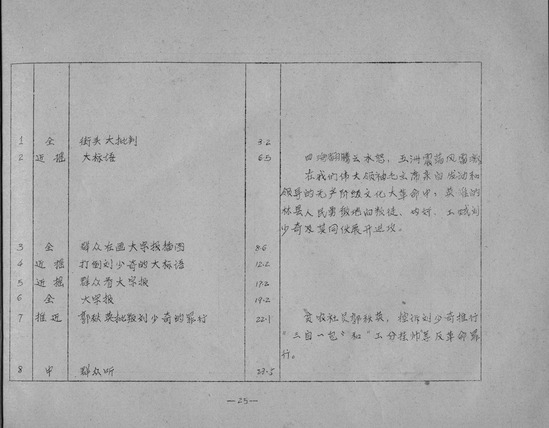 1 全 街头大批判 3.2
2 近 摇 大标语 6.5 四海翻腾云水怒，五洲震荡风雷激
在我们伟大领袖毛主席亲自发动和
领导的无产阶级文化大革命中，英雄的
林县人民勇猛地向叛徒、内奸、工贼刘
少奇及其同伙展开进攻。
3 全 群众在画大字报插图 8.6
4 近 摇 打倒刘少奇的大标语 12.2
5 近 摇 群众看大字报 17.2
6 全 大字报 19.2
7 推 近 郭秋英批叛刘少奇的罪行 22.1 贫农社员郭秋英，控诉刘少奇推行
“三自一包”和“工分挂帅”等反革命罪
行。
8 中 群众听 23.5
—25—